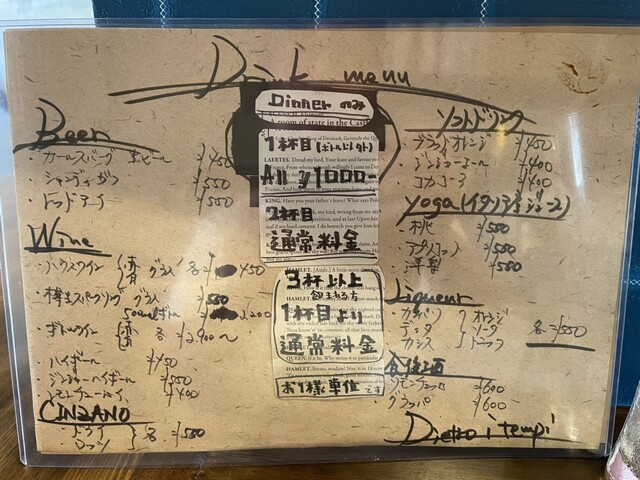 Drink menu
Beer
・カールスバーグ 生ビール ¥450
・シャンディガフ ¥550
・レッドアイ ¥550
Wine
・ハウスワイン (赤 白) グラス 各 ¥450
・樽生スパークリング グラス ¥550
500ml ボトル 2,200
・ボトルワイン (赤 白) 各 ¥2,900〜
・ハイボール ¥450
・ジンジャーハイボール ¥550
¥400
CINZANO
・ドライ
・ロッソ } 各 ¥550
Dinner のみ
1杯目 (ボトル以外)
All ¥1000-
2杯目
通常料金
3杯以上
飲まれる方
1杯目より
通常料金
お1様単位です
ソフトドリンク
・ブラッドオレンジ ¥450
・ジンジャーエール ¥400
・コカコーラ ¥400
yoga (イタリア産ジュース)
・桃 ¥550
・アプリコット ¥550
・洋梨 ¥550
Liqueur
・カンパリ オレンジ
・ディタ ソーダ 各 ¥550
・カシス トニック
食後酒
・リモンチェッロ ¥600
・グラッパ ¥600
Dietro i tempi